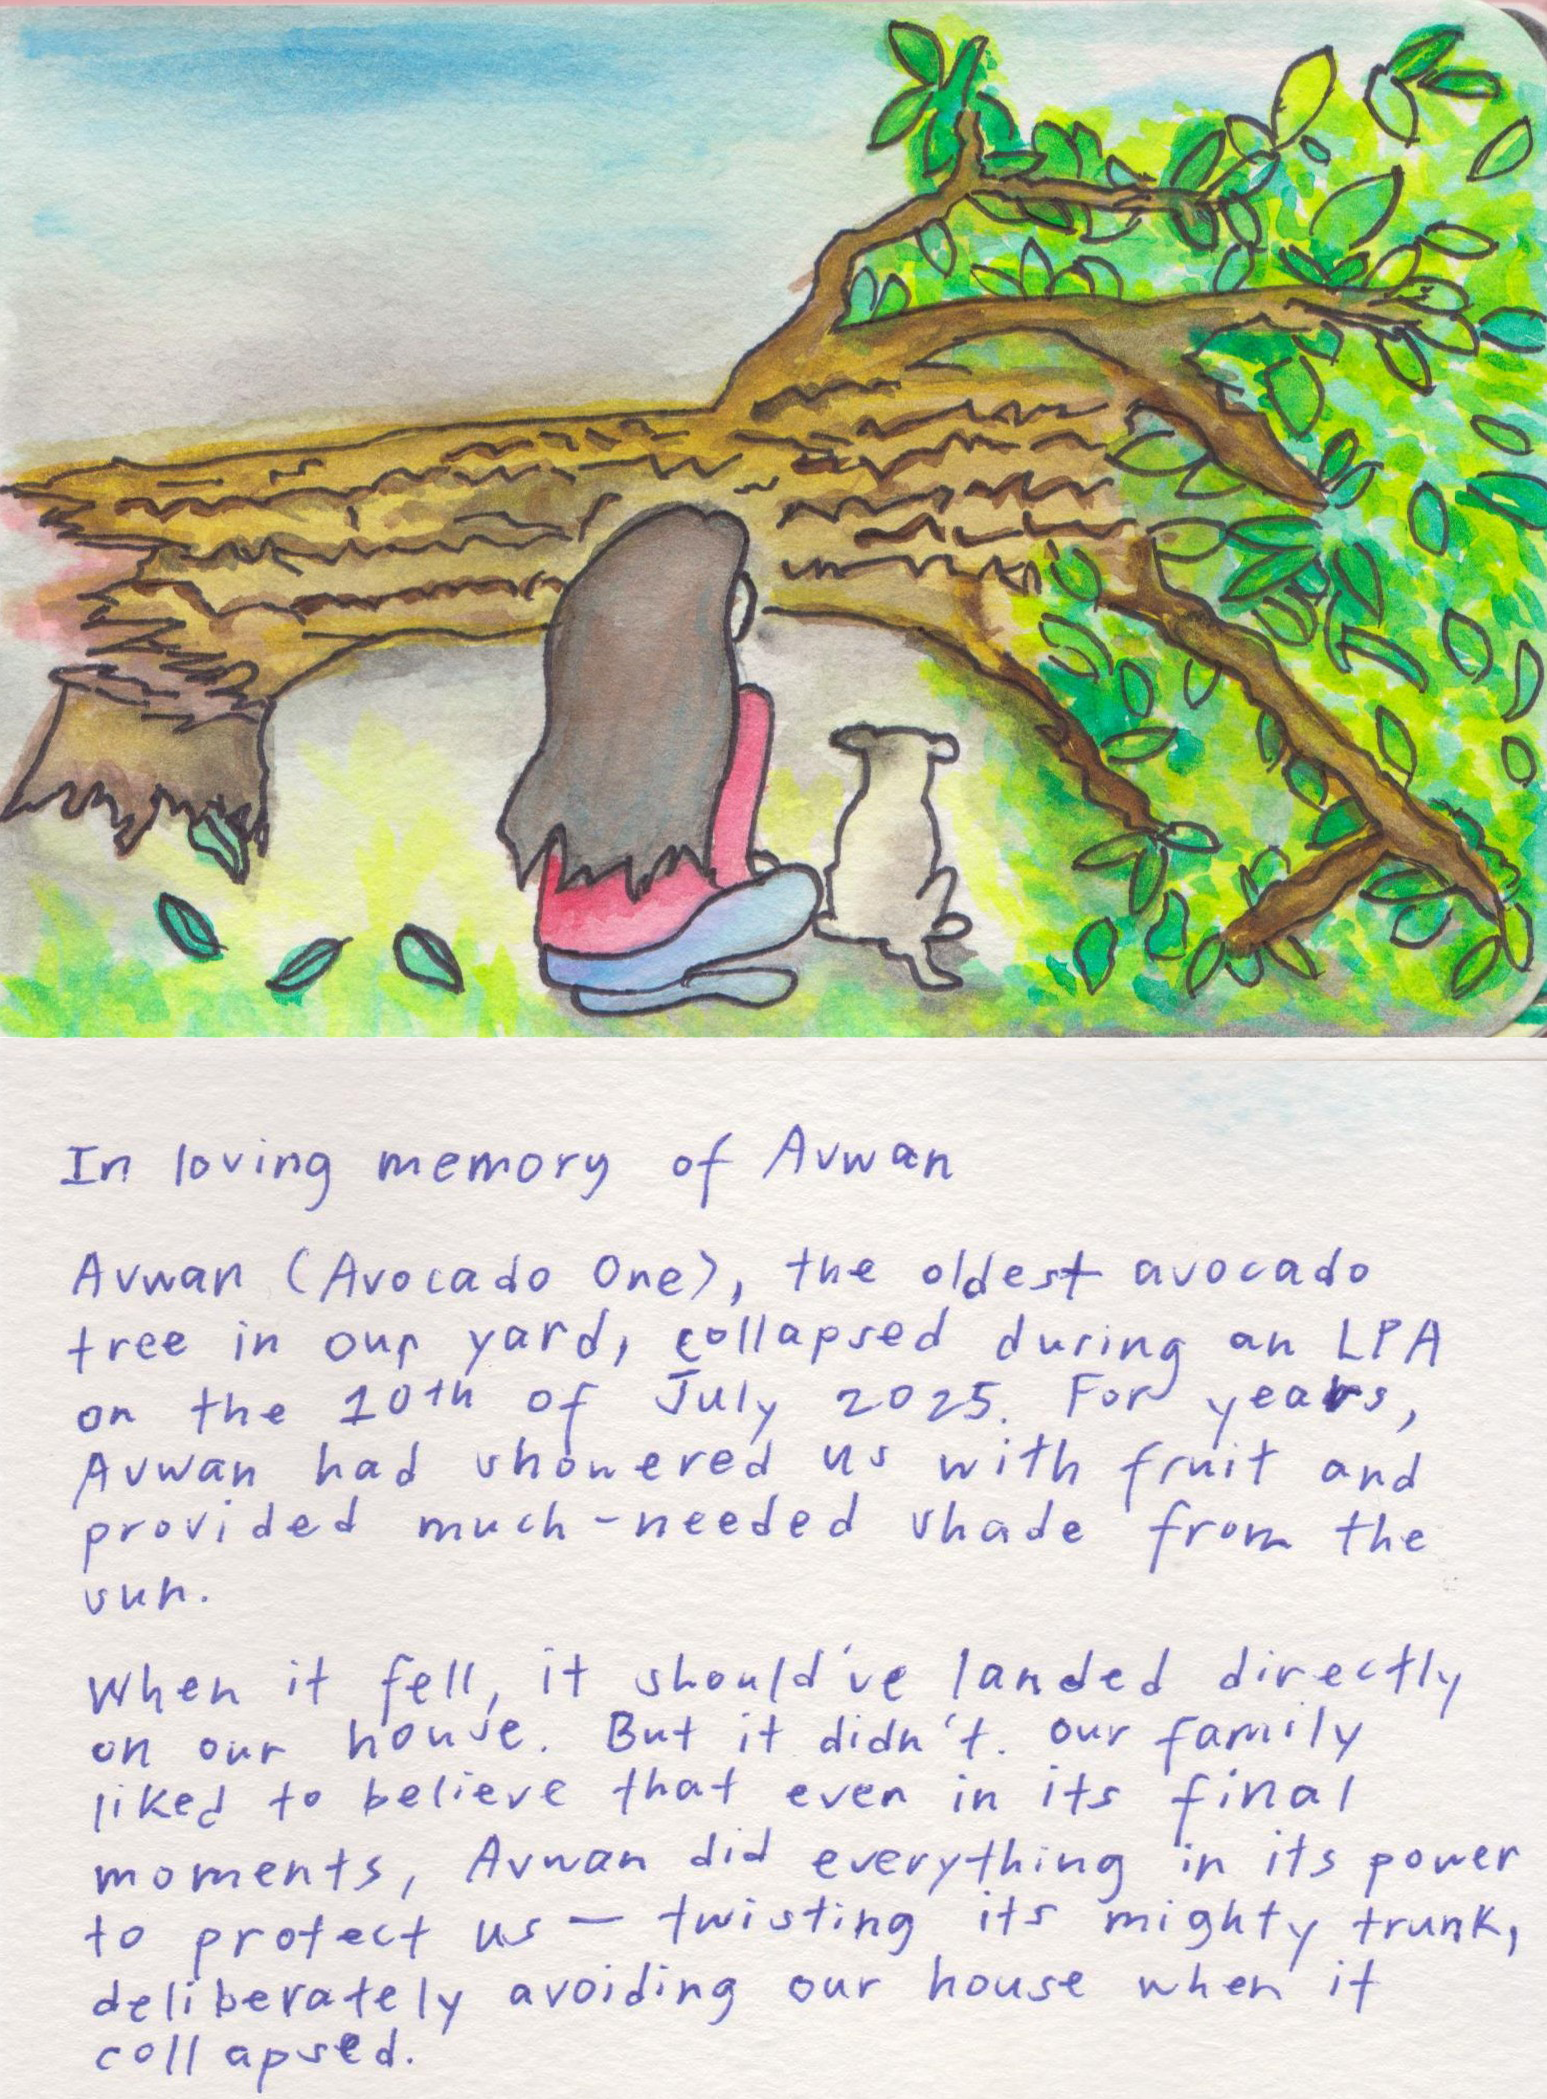 In loving memory of Avwan
Avwan (Avocado One), the oldest avocado
tree in our yard, collapsed during an LPA
on the 10th of July 2025. For years,
Avwan had showered us with fruit and
provided much-needed shade from the
sun.
When it fell, it should've landed directly
on our house. But it didn't. Our family
liked to believe that even in its final
moments, Avwan did everything in its power
to protect us — twisting its mighty trunk,
deliberately avoiding our house when it
collapsed.